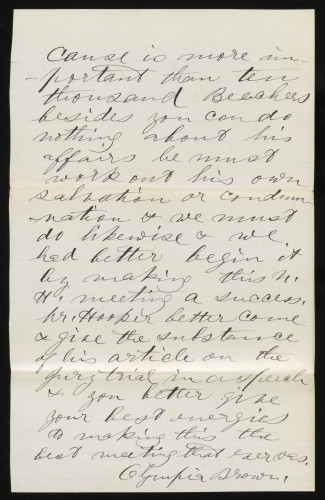 cause is more im-
-portant than ten
thousand Beechers
besides you can do
nothing about his
affairs he must
work out his own
salvation or condem
-nation & we must
do likewise & we
had better begin it
by making this N.
H. meeting a success.
Mr. Hooper better come
& give the substance
of his article on the
jury trial in a speech
& you better give
your best energies
to making this the
best meeting that ever was.
Olympia Brown.